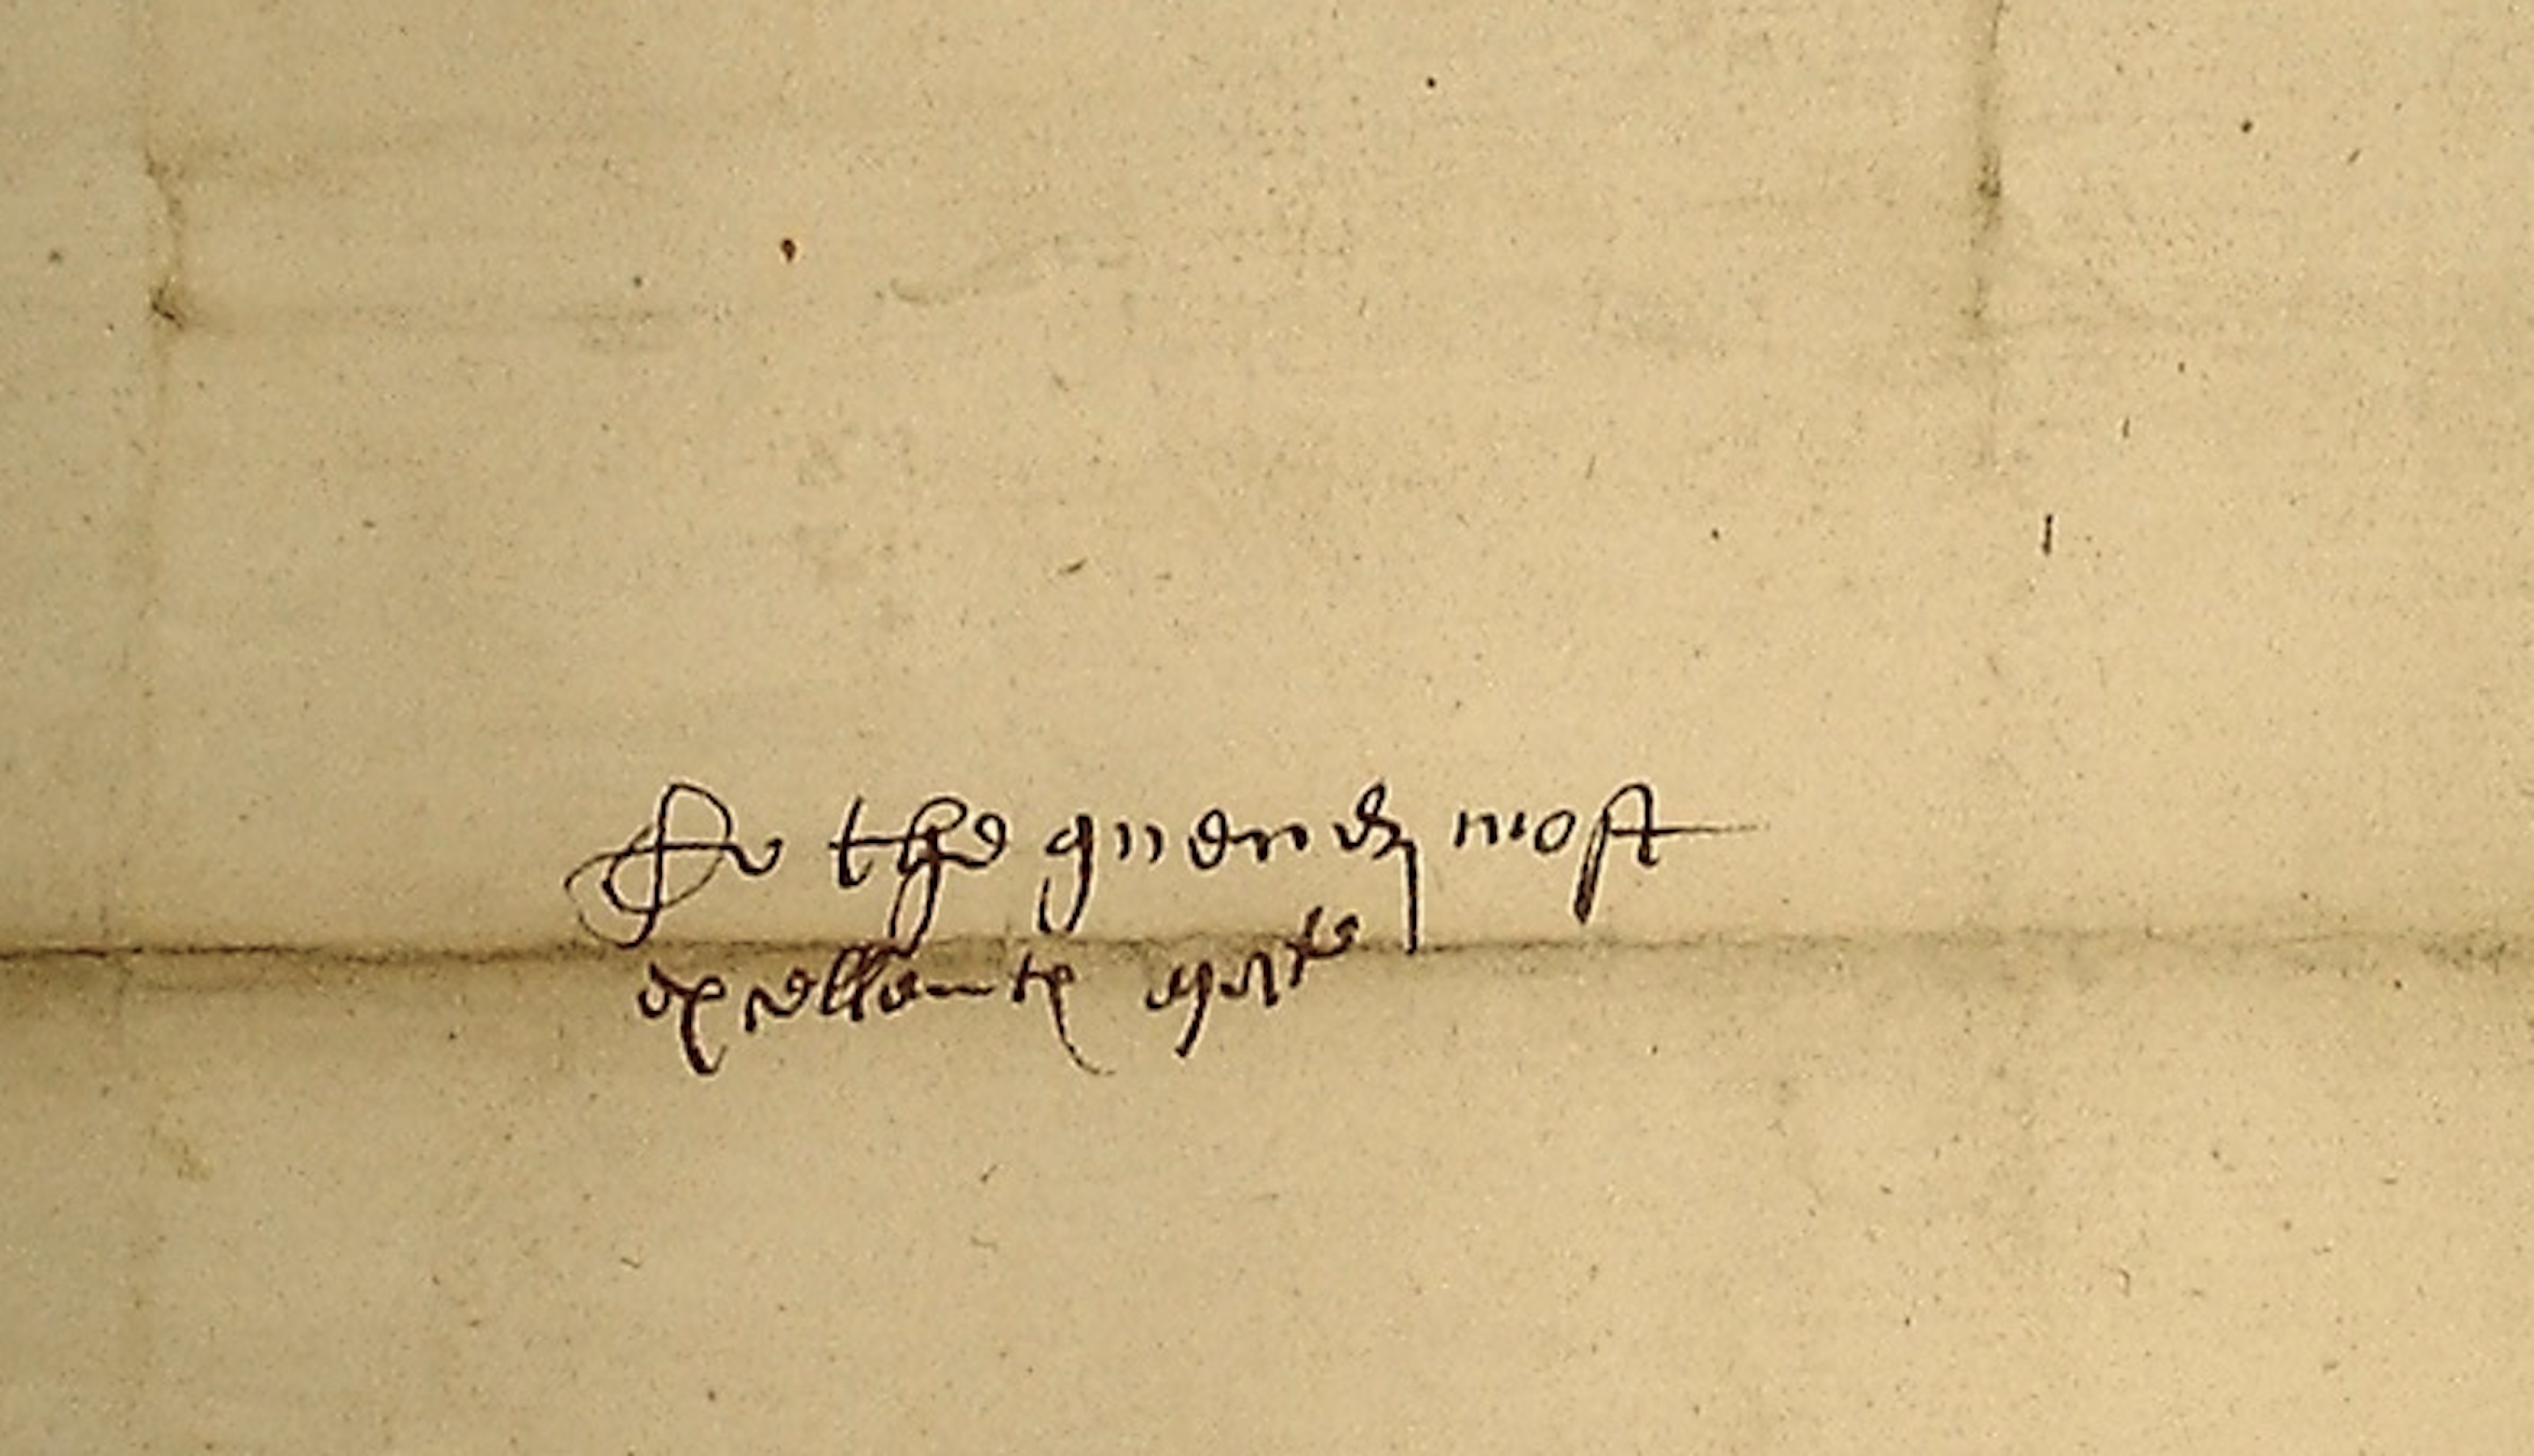 To the quenes most
excellente matie